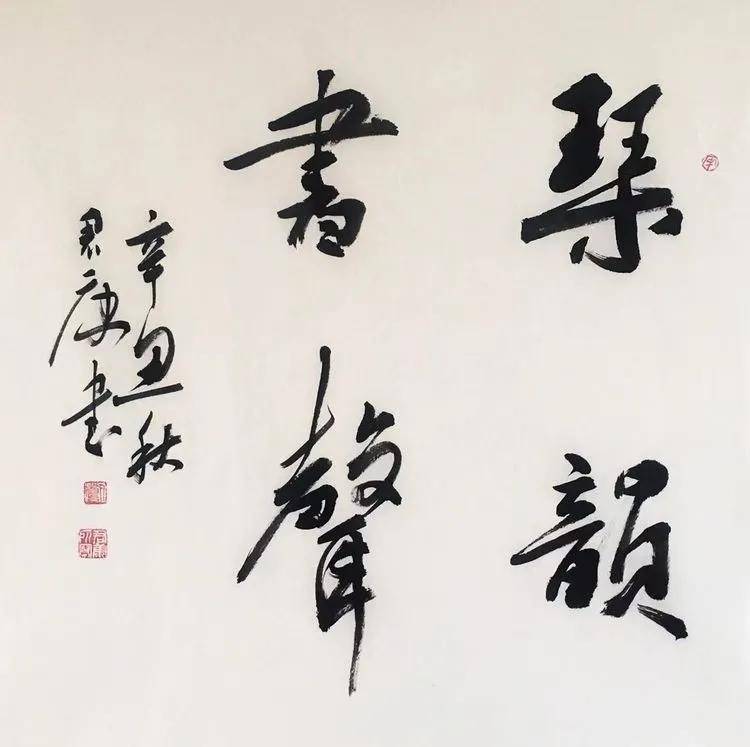 琴韻
書聲
辛丑秋
君康書